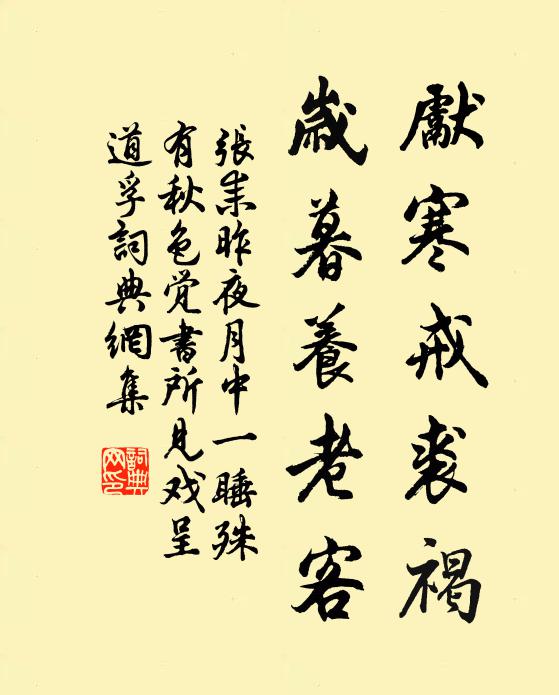 獻寒戒裘褐
歲暮養老客
張耒昨夜月中一睡殊
有秋色覚書所見戏呈
道孚詞典網集
詞典网印